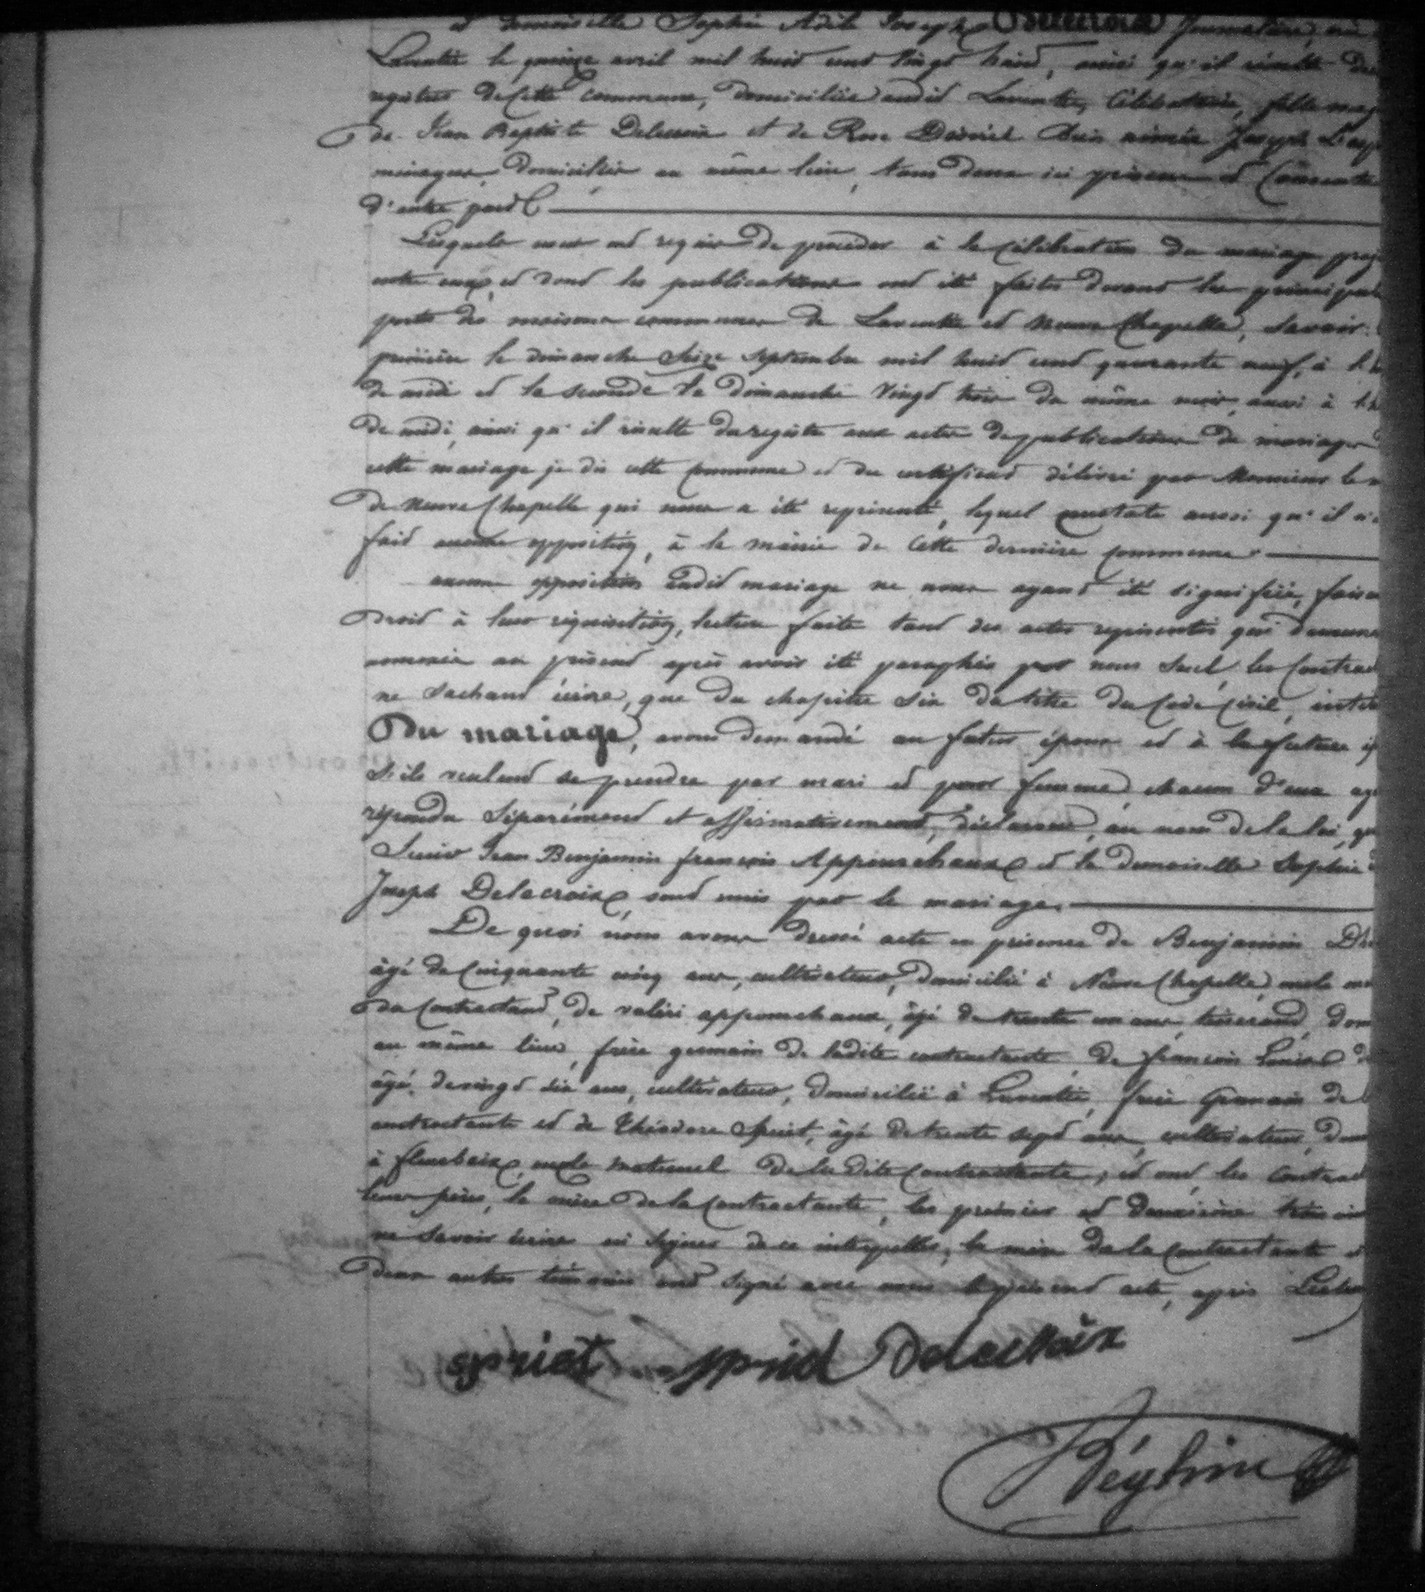 et demoiselle Sophie Adile Joseph Delecroix journalière, née
Laventie le quinze avril mil huit cent vingt huit, ainsi qu'il résulte des
registres de cette commune, domiciliée audit Laventie, célibataire, fille maj
de Jean Baptiste Delecroix et de Rose Désirée aimée Joseph
ménagère, domiciliés au même lieu, tous deux ici présens et consentans
d'autre part
Lesquels nous ont requis de procéder à la célébration du mariage proj
entre eux, et dont les publications ont été faites devant les principales
portes des maisons communes de Laventie et Neuve Chapelle, savoir :
première le dimanche seize septembre mil huit cent quarante neuf, à l'h
de midi et la seconde le dimanche vingt trois du même mois, aussi à l'h
de midi, ainsi qu'il résulte du registre aux actes de publications de mariages
cette mariage je dis cette commune et du certificat délivré par Monsieur le m
de Neuve Chapelle qui nous a été représenté, lequel constate aussi qu'il n'a
fait aucune opposition, à la mairie de cette dernière commune.
aucune opposition audit mariage ne nous ayant été signifiée, faisan
droit à leur réquisition, lecture faite tant des actes représentés qui demeure
annexés au présent après avoir été paraphés par nous seul, les contrac
ne sachant écrire, que du chapitre six du titre du Code Civil, intit
Du mariage, avons demandé au futur époux et à la future ép
s'ils veulent se prendre par mari et pour femme, chacun d'eux ay
répondu séparément et affirmativement, déclarons, au nom de la loi, qu
Sieur Jean Benjamin françois Appourchaux et la demoiselle Sophie
Joseph Delacroix, sont unis par le mariage.
De quoi nous avons dressé acte en présence de Benjamin
âgé de cinquante cinq ans, cultivateur, domicilié à Neuve Chapelle, oncle
du contractant, de valéri appourchaux, âgé de trente un ans, tisserand, dom
au même lieu, frère germain de ladite contractante de françois Louis
âgé de vingt six ans, cultivateur, domicilié à Laventie, frère germain de l
contractante et de Théodore Spriet, âgé de trente sept ans, cultivateur, dom
à fleurbaix, oncle maternel de ladite contractante ; et ont les contract
leurs pères, la mère de la contractante, les premier et deuxième témoins
ne savoir écrire ni signer de ce interpellés, la mère de la contractante et
deux autres témoins ont signé avec nous le présent acte, après Lecture
spriet spried Delecroix
Béghin